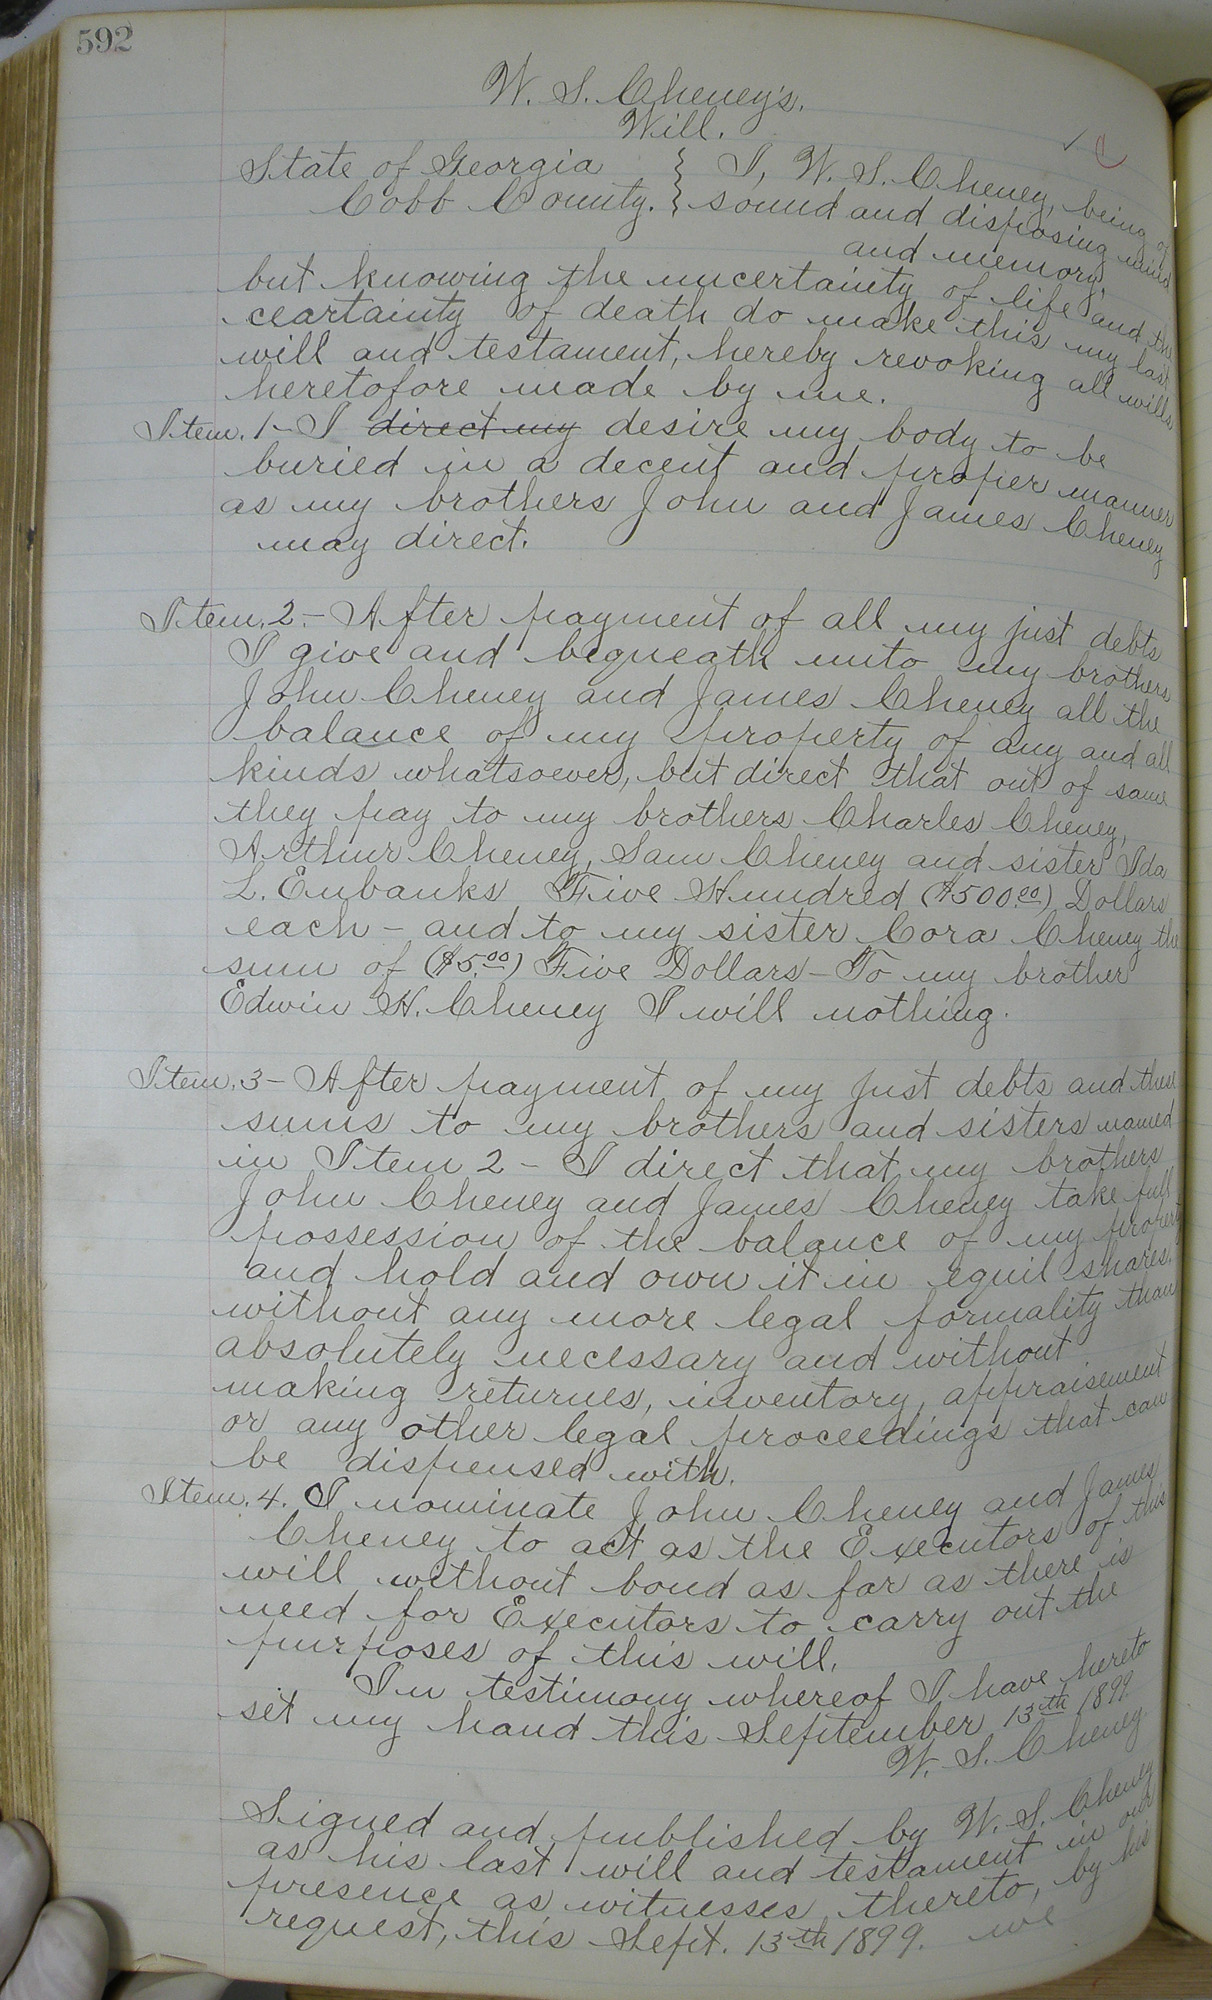 592
W. S. Cheney's.
Will.
State of Georgia } I, W. S. Cheney, being of
Cobb County. } sound and disposing mind
and memory,
but knowing the uncertainty of life and the
ceartainty of death do make this my last
will and testament, hereby revoking all wills
heretofore made by me.
Item. 1- I direct my desire my body to be
buried in a decent and proper manner
as my brothers John and James Cheney
may direct.
Item. 2.- After payment of all my just debts
I give and bequeath unto my brothers
John Cheney and James Cheney all the
balance of my property of any and all
kinds whatsoever, but direct that out of same
they pay to my brothers Charles Cheney,
Arthur Cheney, Sam Cheney and sister Ida
L. Eubanks Five Hundred ($500.00) Dollars
each - and to my sister Cora Cheney the
sum of ($5.00) Five Dollars - To my brother
Edwin H. Cheney I will nothing.
Item. 3 - After payment of my just debts and these
sums to my brothers and sisters named
in Item 2 - I direct that my brothers
John Cheney and James Cheney take full
possession of the balance of my property
and hold and own it in equil shares,
without any more legal formality than
absolutely necessary and without
making returnes, inventory, appraisement
or any other legal proceedings that can
be dispensed with.
Item. 4. I nominate John Cheney and James
Cheney to act as the Executors of this
will without bond as far as there is
need for Executors to carry out the
purposes of this will.
In testimony whereof I have hereto
set my hand this September 13th 1899
W. S. Cheney
Signed and published by W. S. Cheney
as his last will and testament in our
presence as witnesses thereto, by his
request, this Sept. 13th 1899. we